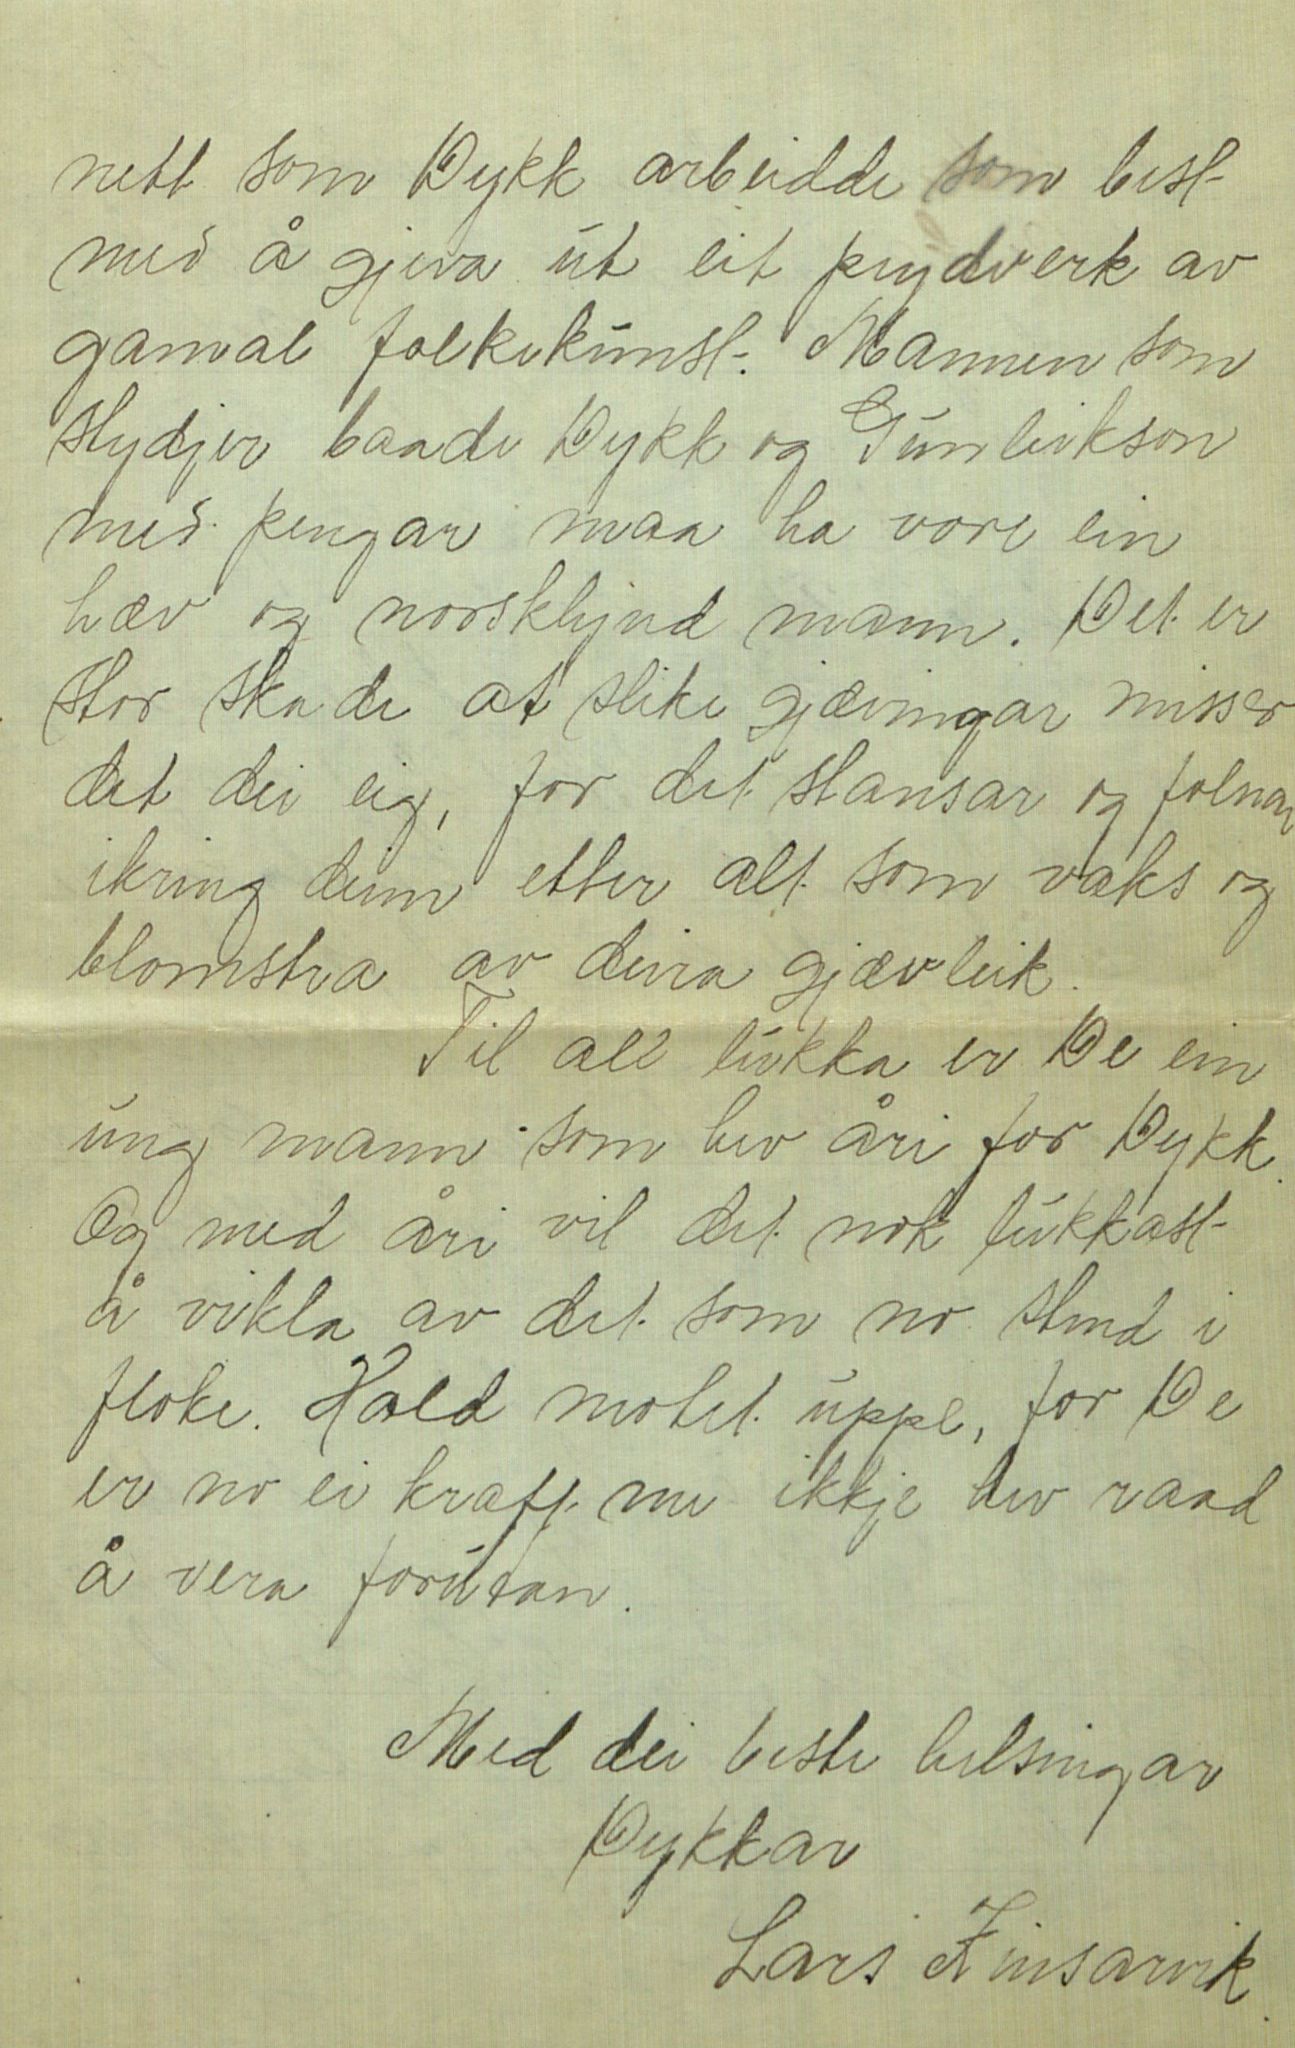 nett som Dykk arbeidde som best
med å gjeva ut eit prydverk av
gamal folkekunst. Mannen som
stydjer baade Dykk og Gunleikson
med pengar maa ha vore ein
hæv og norsklynd mann. Det er
stor skade at slike gjævingar misser
det dei eig, for det stansar og folnar
ikring deim etter alt som vaks og
blomstra av deira gjævleik.
Til all lukka er De ein
ung mann som hev åri for Dykk.
Og med åri vil det nok lukkast
å vikla av det som no stend i
floke. Hald motet uppe, for De
er no ei kraft me ikkje hev raad
å vera forutan.
Med dei beste helsingar
Dykkar
Lars Kinsarvik.